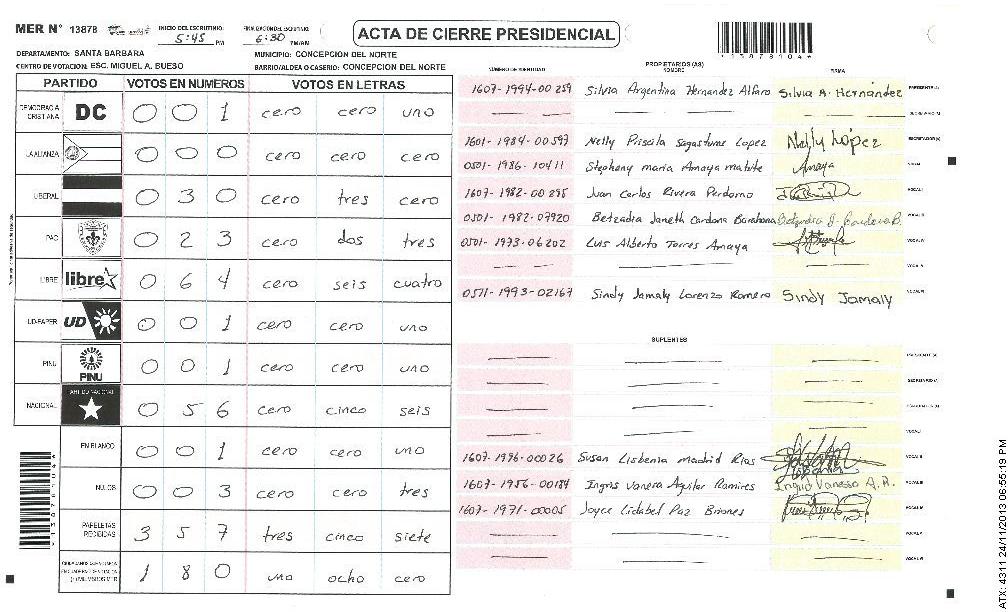 MER N° 13878 INICIO DEL ESCRUTINIO: 5:45 PM FINALIZACION DEL ESCRUTINIO: 6:30 PM/AM
ACTA DE CIERRE PRESIDENCIAL
*13878104*
DEPARTAMENTO: SANTA BARBARA MUNICIPIO: CONCEPCION DEL NORTE
CENTRO DE VOTACION: ESC. MIGUEL A. BUESO BARRIO/ALDEA O CASERIO: CONCEPCION DEL NORTE
PARTIDO VOTOS EN NUMEROS VOTOS EN LETRAS
DEMOCRACIA CRISTIANA DC 0 0 1 cero cero uno
LA ALIANZA 0 0 0 cero cero cero
LIBERAL 0 3 0 cero tres cero
PAC 0 2 3 cero dos tres
LIBRE libre 0 6 4 cero seis cuatro
UD-FAPER UD 0 0 1 cero cero uno
PINU PINU 0 0 1 cero cero uno
NACIONAL PARTIDO NACIONAL 0 5 6 cero cinco seis
EN BLANCO 0 0 1 cero cero uno
NULOS 0 0 3 cero cero tres
PAPELETAS RECIBIDAS 3 5 7 tres cinco siete
1 8 0 uno ocho cero
NÚMERO DE IDENTIDAD PROPIETARIOS (AS) NOMBRE FIRMA
1607-1994-00259 Silvia Argentina Hernandez Alfaro Silvia A. Hernández PRESIDENTE(A)
SECRETARIO(A)
1601-1984-00597 Nelly Priscila Sagastume Lopez Nelly López ESCRUTADOR(A)
0501-1986-10411 Stephany maria Amaya matute Amaya
1607-1982-00295 Juan Carlos Rivera Perdomo VOCAL I
0501-1982-07920 Betzadia Janeth Cardona Barahona
0501-1973-06202 Luis Alberto Torres Amaya
0511-1993-02167 Sindy Jamaly Lorenzo Romero Sindy Jamaly
SUPLENTES
1607-1976-00026 Susan Lisbenia Madrid Rios
1607-1956-00184 Ingris Vanera Aguilar Ramires Ingrid Vanessa A.R.
1607-1971-00005 Joyce Lidabel Paz Briones
ATX: 4311 24/11/2013 06:55:19 PM